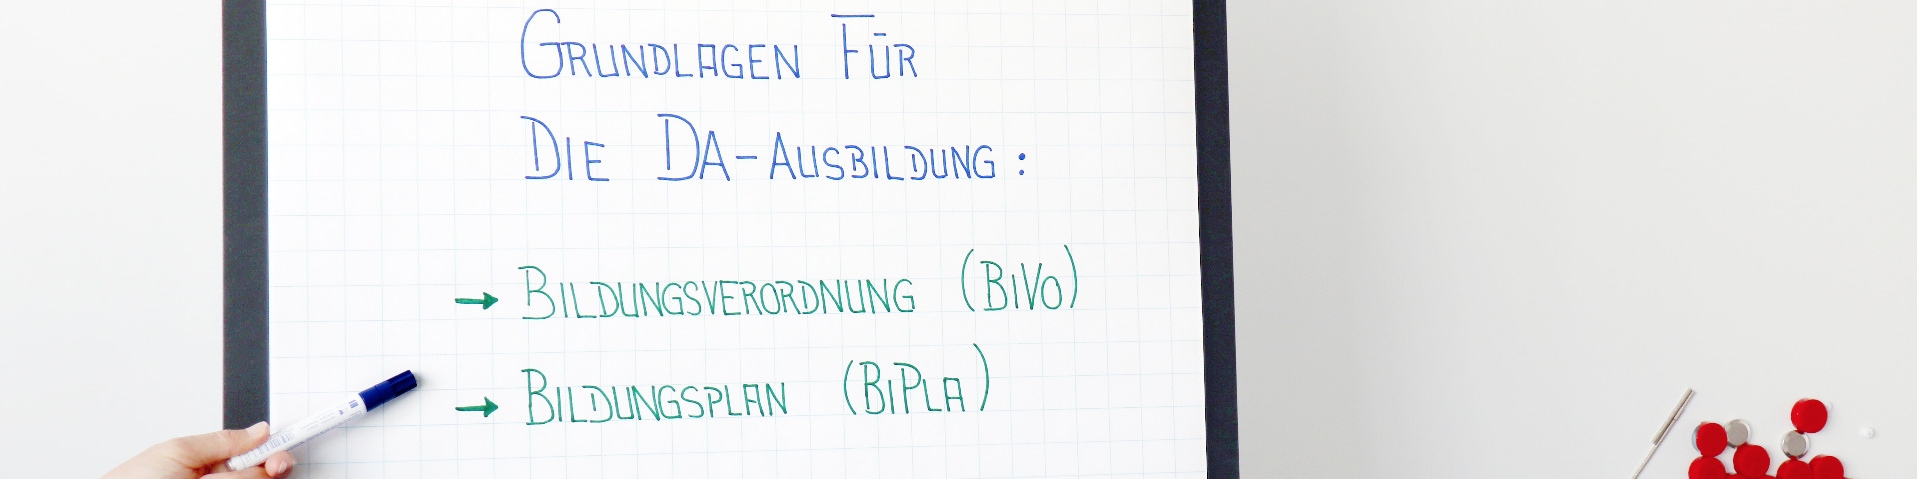 GRUNDLAGEN FÜR
DIE DA-AUSBILDUNG:
→ BILDUNGSVERORDNUNG (BIVO)
→ BILDUNGSPLAN (BIPLA)